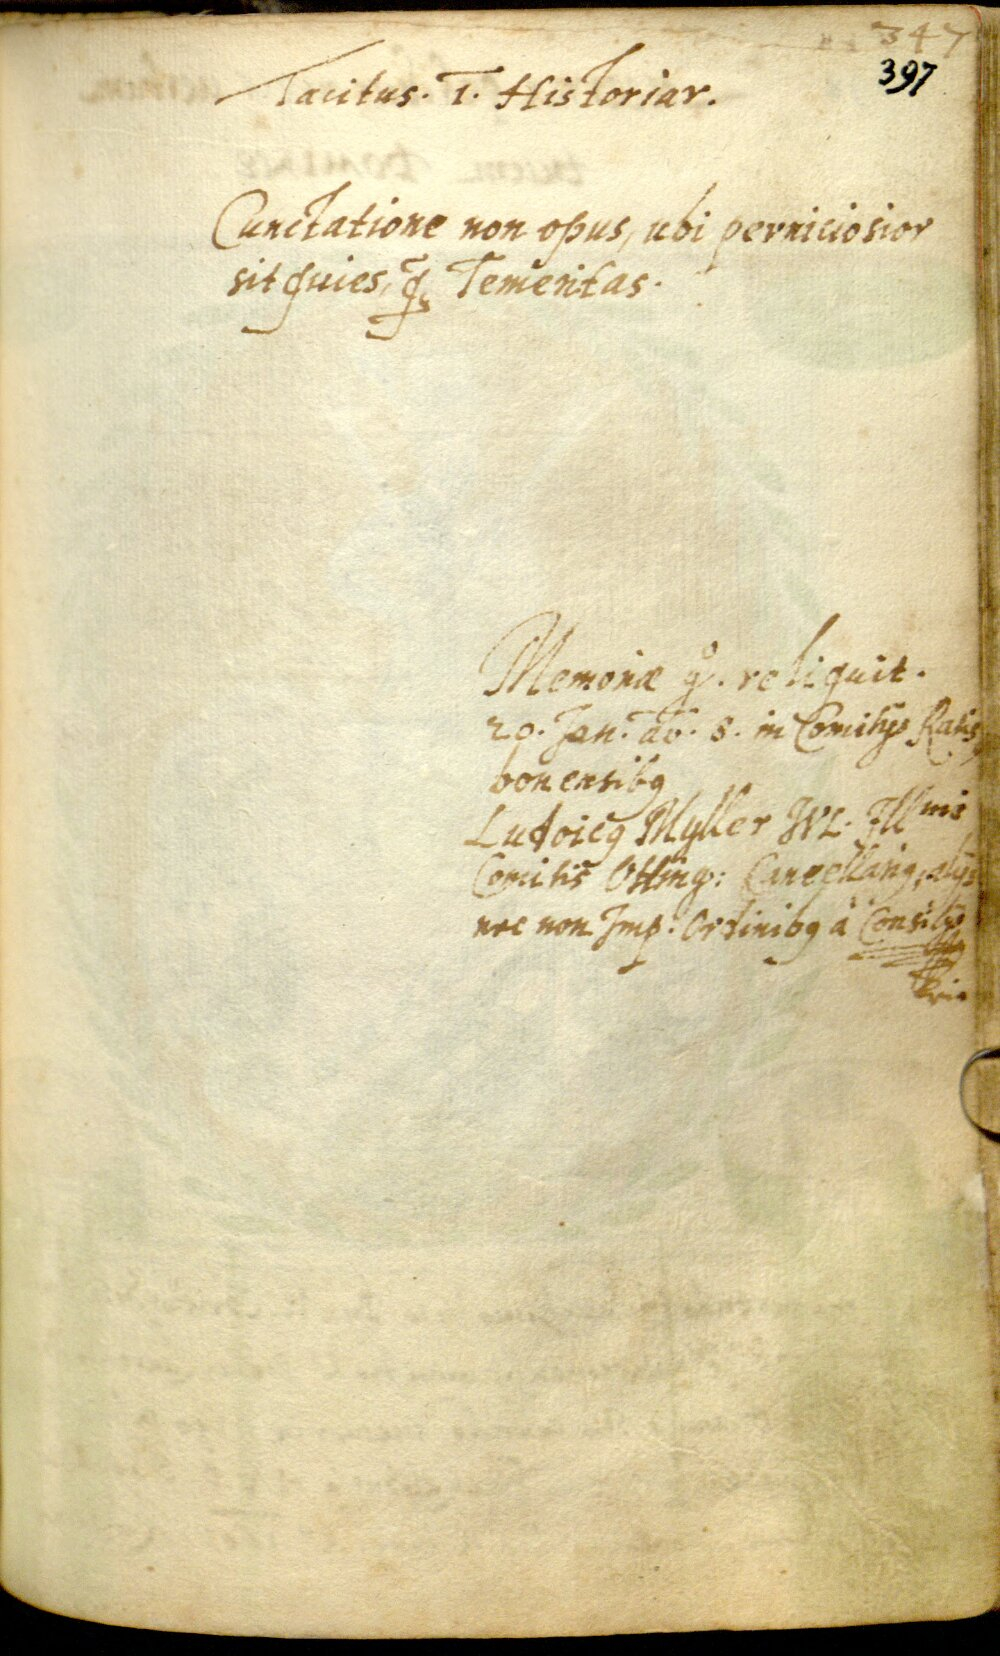 347
397
Tacitus. 1. Historiar.
Cunctatione non opus, ubi perniciosior
sit quies, q̃ Temeritas.
Memoriæ gͦ. reliquit.
20. Jan. aõ. 8. in Comitijs Ratis
bonensibꝰ
Ludoicꝰ Myller JVL. Illmis
Comitis Otting: Cancellariꝰ, alijs
nec non Imp: Ordinibꝰ à Consilijs